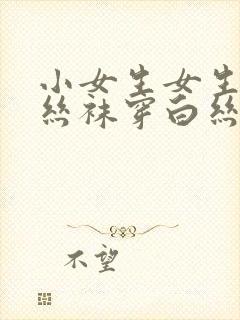 小女生女生
丝袜穿白丝
不望